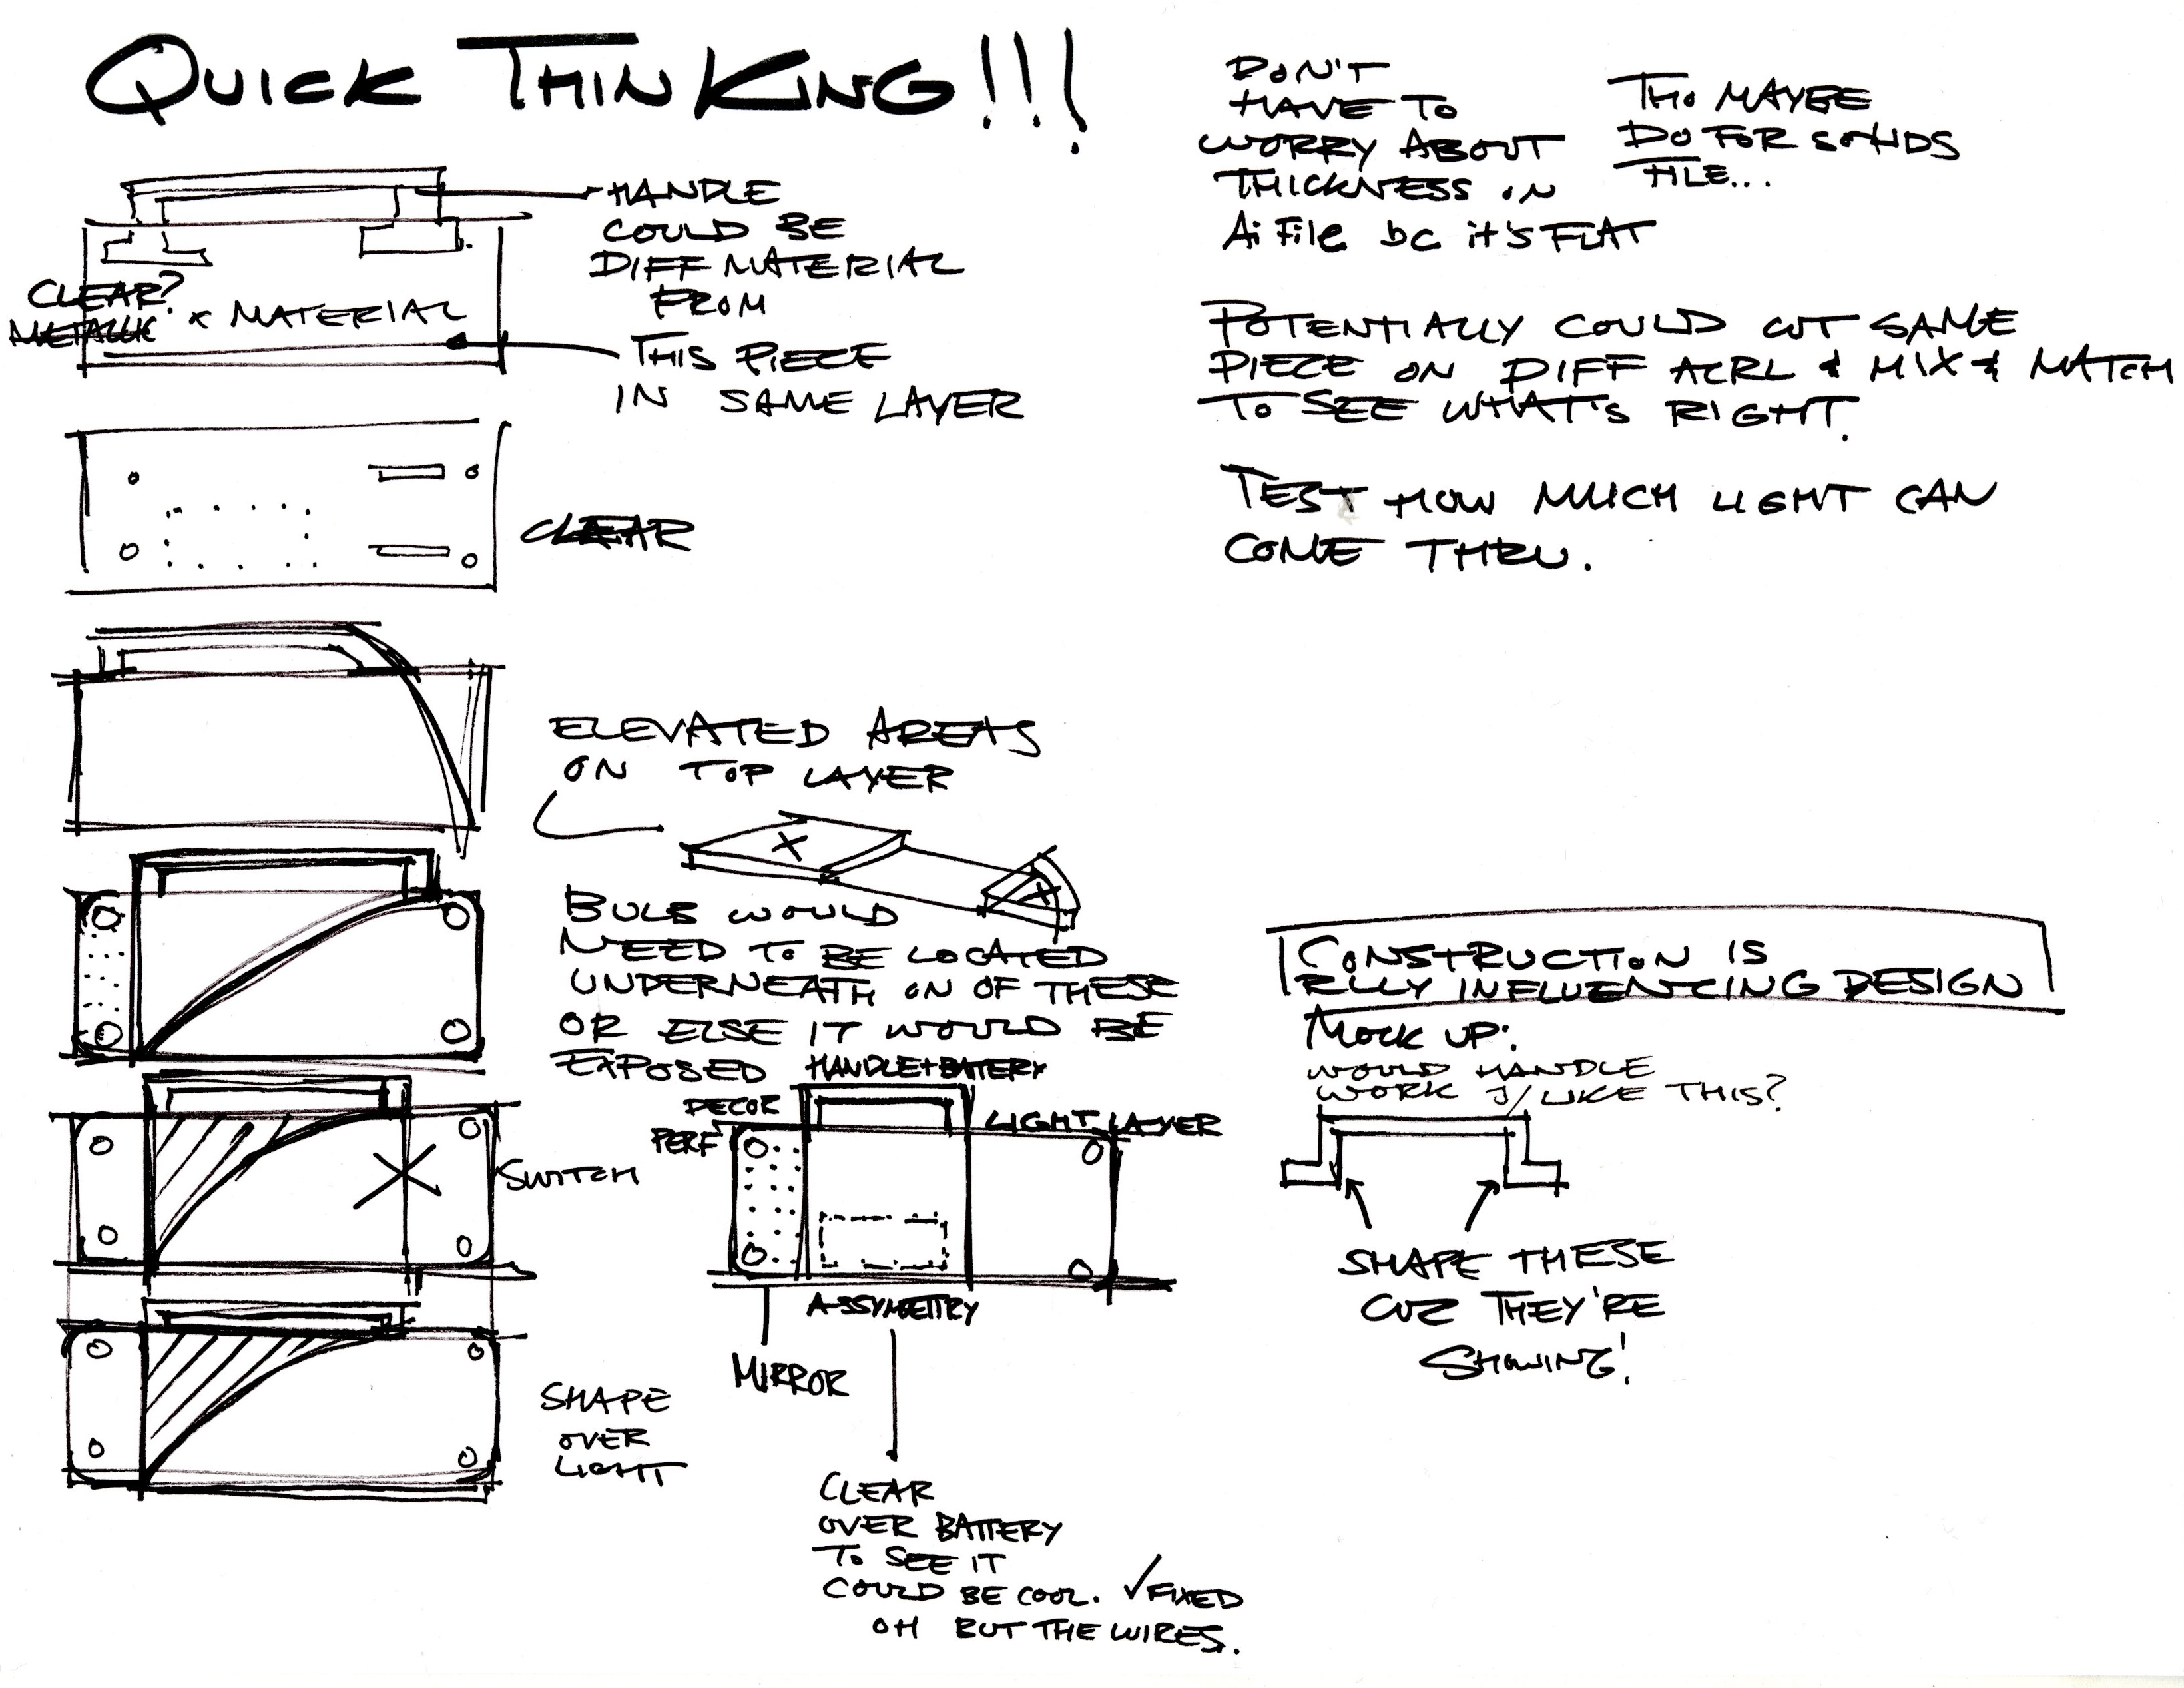 QUICK THINKING!!!
HANDLE
COULD BE
DIFF MATERIAL
FROM
THIS PIECE
IN SAME LAYER
CLEAR?
METALLIC
x MATERIAL
CLEAR
ELEVATED AREAS
ON TOP LAYER
BULB WOULD
NEED TO BE LOCATED
UNDERNEATH ON OF THESE
OR ELSE IT WOULD BE
EXPOSED
SWITCH
SHAPE
OVER
LIGHT
HANDLE+BATTERY
DECOR
PERF
LIGHT LAYER
ASSYMETRY
MIRROR
CLEAR
OVER BATTERY
TO SEE IT
COULD BE COOL. ✓FIXED
OH BUT THE WIRES.
DON'T
HAVE TO
WORRY ABOUT
THICKNESS ON
Ai File bc it's FLAT
THO MAYBE
DO FOR SOLIDS
FILE...
POTENTIALLY COULD CUT SAME
PIECE ON DIFF ACRL & MIX & MATCH
TO SEE WHAT'S RIGHT.
TEST HOW MUCH LIGHT CAN
COME THRU.
CONSTRUCTION IS
RLLY INFLUENCING DESIGN
MOCK UP:
WOULD HANDLE
WORK J/ LIKE THIS?
SHAPE THESE
CUZ THEY'RE
SHOWING!